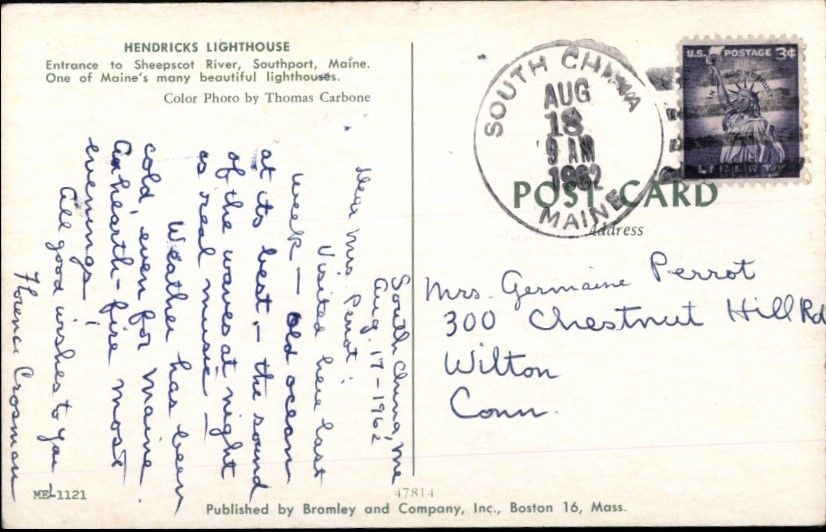 HENDRICKS LIGHTHOUSE
Entrance to Sheepscot River, Southport, Maine.
One of Maine's many beautiful lighthouses.
Color Photo by Thomas Carbone
South China, Me
Aug. 17-1962
Dear Mrs. Perrot:
Visited here last
week — old ocean
at its best, — the sound
of the waves at night
as real music —
Weather has been
cold, even for Maine.
A hearth-fire most
evenings!
All good wishes to you
Florence Crosman
ME-1121
SOUTH CHINA
AUG
18
9 AM
1962
MAINE
U.S. POSTAGE 3¢
IN GOD WE TRUST
LIBERTY
POST CARD
Address
Mrs. Germaine Perrot
300 Chestnut Hill Rd
Wilton
Conn.
47814
Published by Bromley and Company, Inc., Boston 16, Mass.